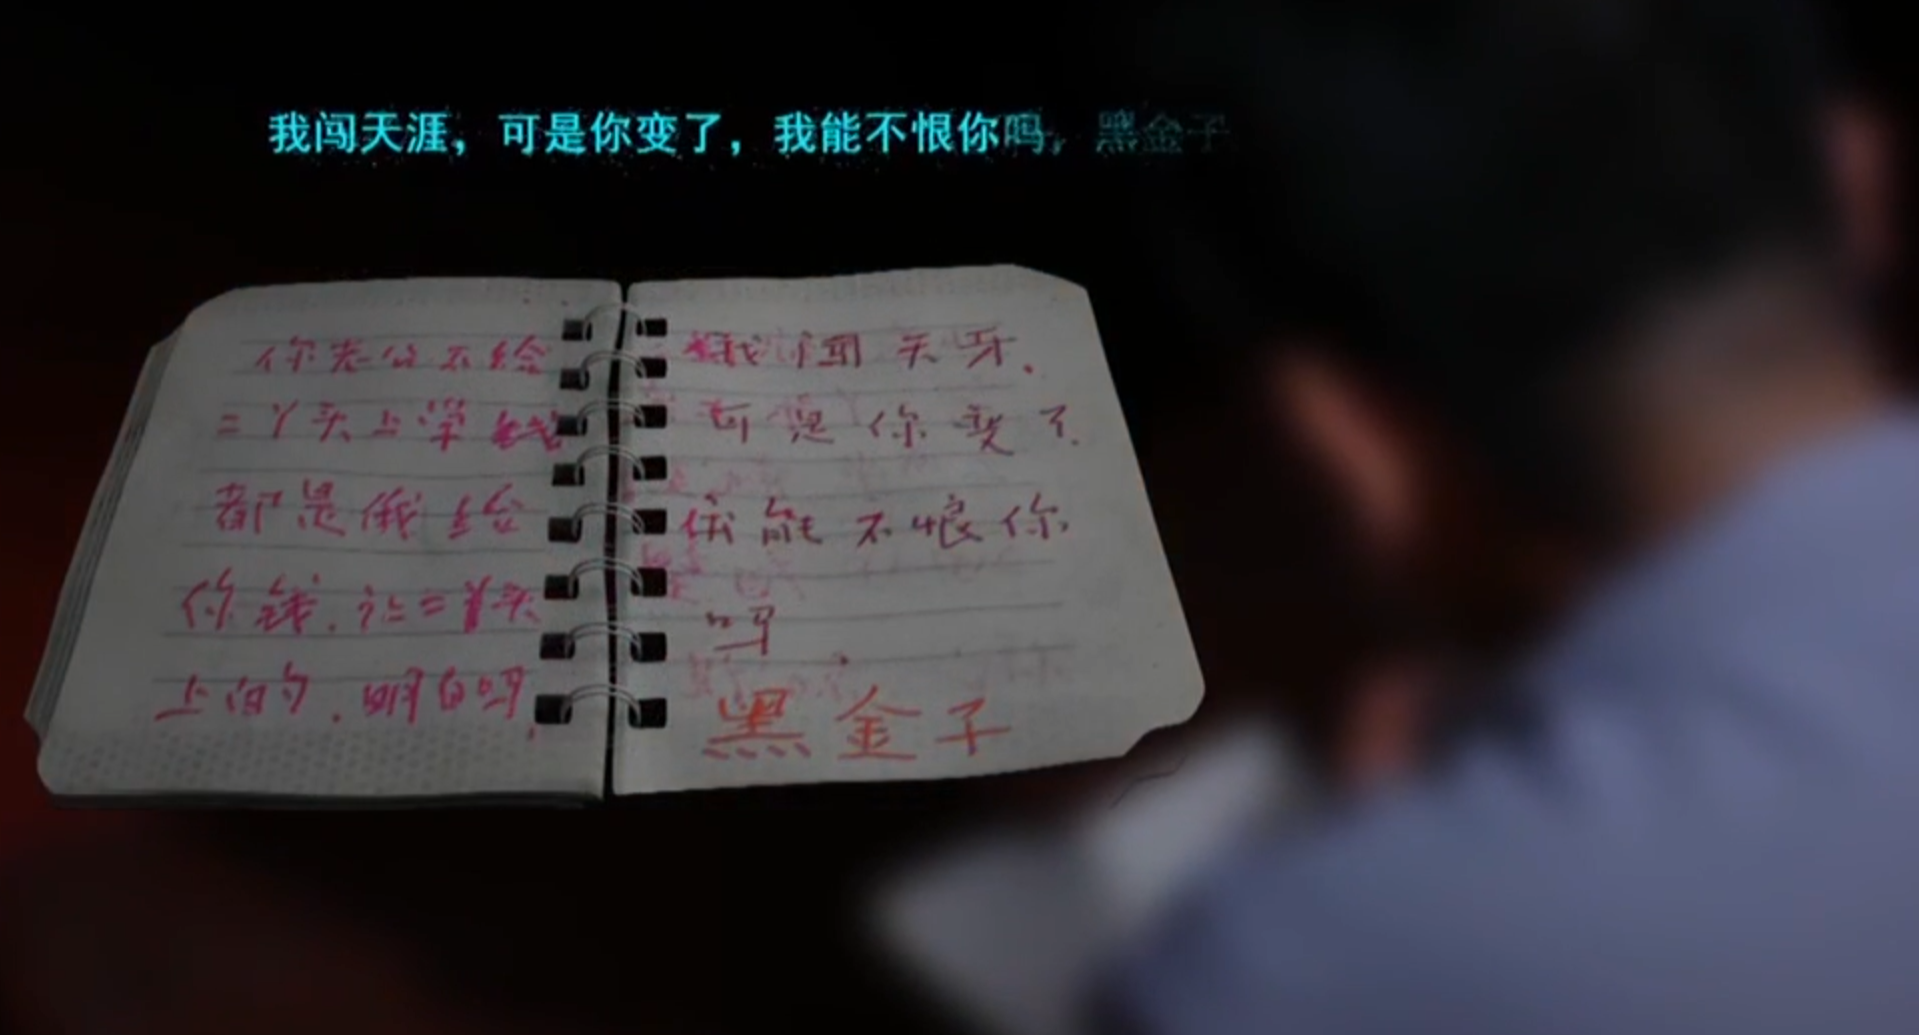 我闯天涯，可是你变了，我能不恨你吗，黑金子
你老公不给
二丫头上学钱
都是俄给
你钱.让二丫头
上的.明白吗.
俄闯天牙.
可是你变了.
俄能不恨你
吗
黑金子